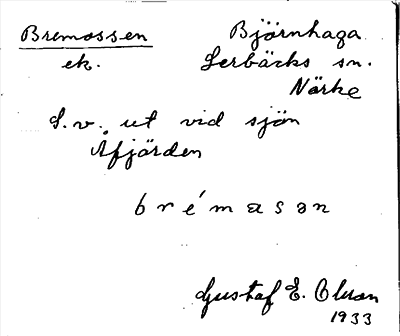 Bremossen
ek.
Björnhaga
Lerbäcks sn.
Närke
S.v. ut vid sjön
Åfjärden
brémasan
Gustaf E. Olsson
1933